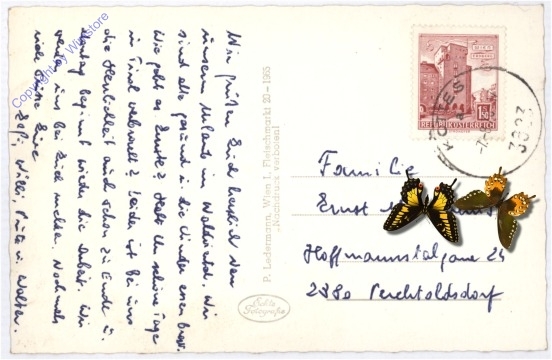 Wir grüßen Euch herzlich von
unserem Urlaub im Waldviertel. Wir
sind alle gesund u. die Kinder essen brav.
Wie geht es Euch? Habt Ihr schöne Tage
in Tirol verbracht? Leider ist bei uns
die Herrlichkeit auch schon zu Ende u.
Montag beginnt wieder die Arbeit. Wir
werden uns bei Euch melden. Nochmals
viele Grüße Eure
Willi, u. Walter.
Copyright by Winstore
P. Ledermann, Wien I, Fleischmarkt 20 - 1965
(Nachdruck verboten)
Echte
Fotografie
WIEN
1.50
REPUBLIK ÖSTERREICH
KOTTES
3623
Familie
Ernst
Hofmannsthalgasse 24
2380 Perchtoldsdorf